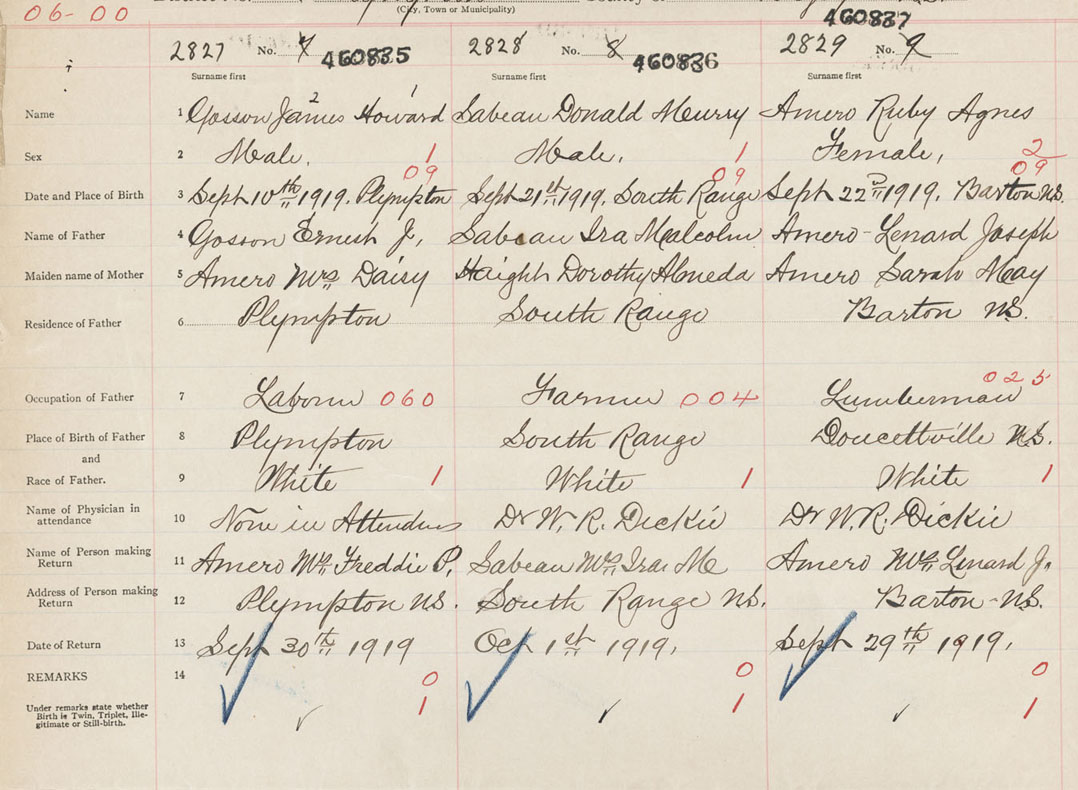 06-00
(City, Town or Municipality)
460837
2827 No. 7 460835 2828 No. 8 460836 2829 No. 9
Surname first Surname first Surname first
Name 1 Gosson James Howard Sabean Donald Murry Amero Ruby Agnes
2 1
Sex 2 Male, 1 Male, 1 Female, 2
09 09 09
Date and Place of Birth 3 Sept 10th 1919. Plympton Sept 21st 1919, South Range Sept 22nd 1919, Barton NS.
Name of Father 4 Gosson Ernest J, Sabean Ira Malcolm Amero-Lenard Joseph
Maiden name of Mother 5 Amero Mrs Daisy Haight Dorothy Almeda Amero Sarah May
Residence of Father 6 Plympton South Range Barton NS.
025
Occupation of Father 7 Laborer 060 Farmer 004 Lumberman
Place of Birth of Father 8 Plympton South Range Doucettville NS.
and
Race of Father. 9 White 1 White 1 White 1
Name of Physician in
attendance 10 None in Attendens Dr W. R. Dickie Dr W. R. Dickie
Name of Person making
Return 11 Amero Mrs Freddie P. Sabean Mrs Ira M Amero Mrs Lenard J.
Address of Person making
Return 12 Plympton NS. South Range NS. Barton-NS.
Date of Return 13 Sept 30th 1919 Oct 1st 1919, Sept 29th 1919,
REMARKS 14 0 0 0
Under remarks state whether
Birth is Twin, Triplet, Ille-
gitimate or Still-birth. 1 1 1